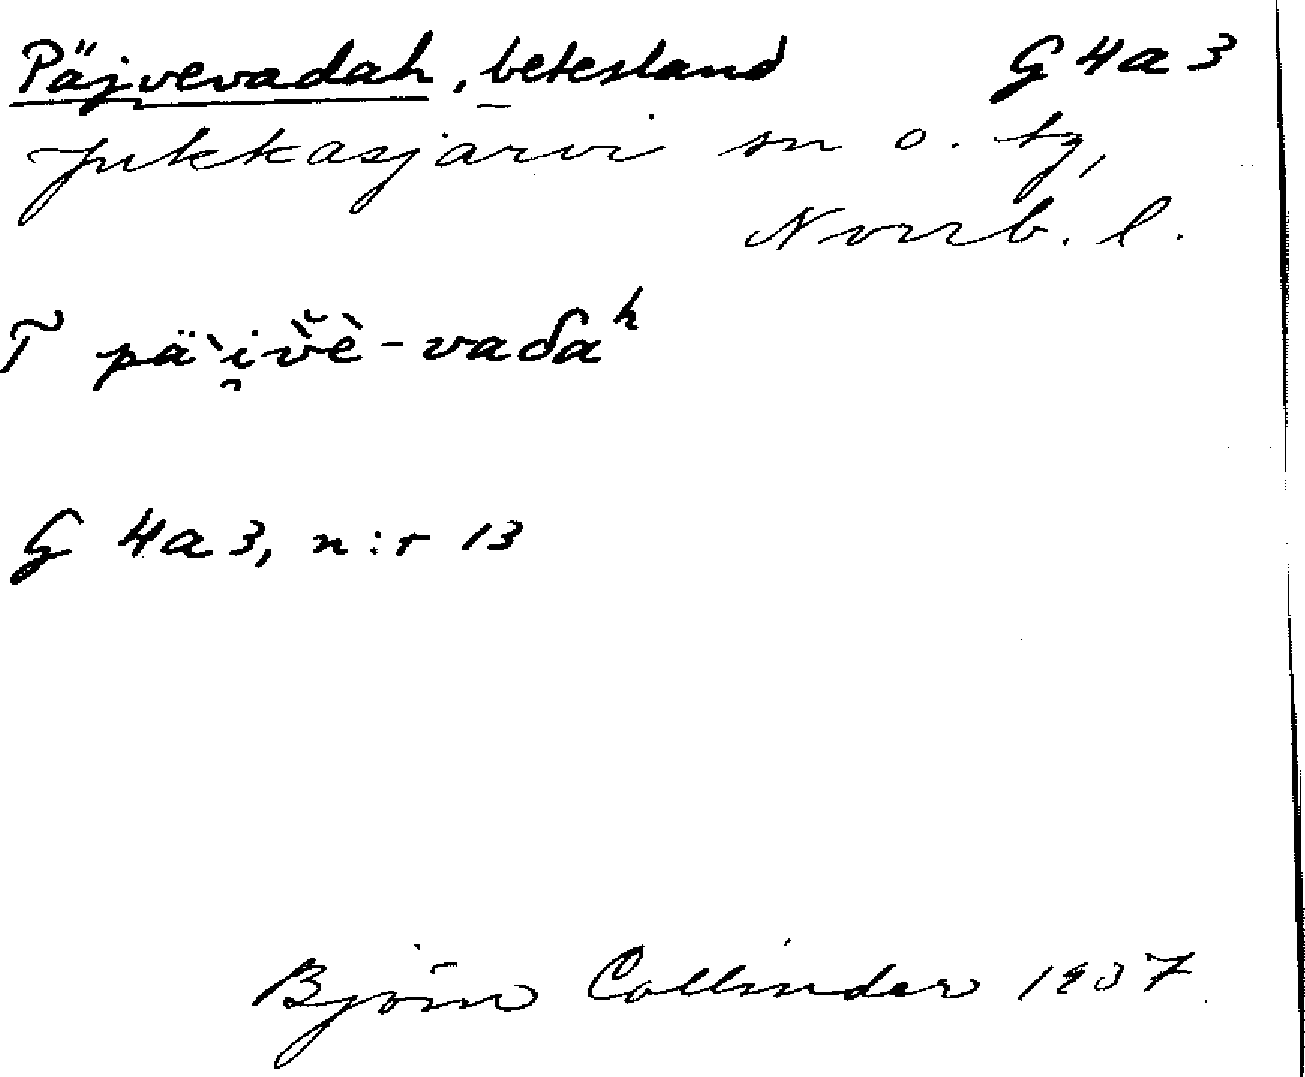 Päjvevadah, betesland G 4a 3
Jukkasjärvi sn o. tg,
Norrb. l.
T pä`i̯v̌è - vaδaʰ
G 4a3, n:r 13
Björn Collinder 1937